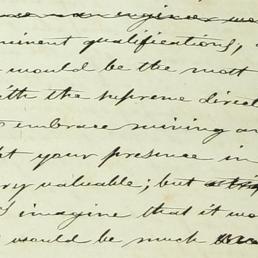 eminent qualifications,
would be the most
with the supreme direc
embrace mining an
t your presence in
ry valuable; but
I imagine that it wo
would be much